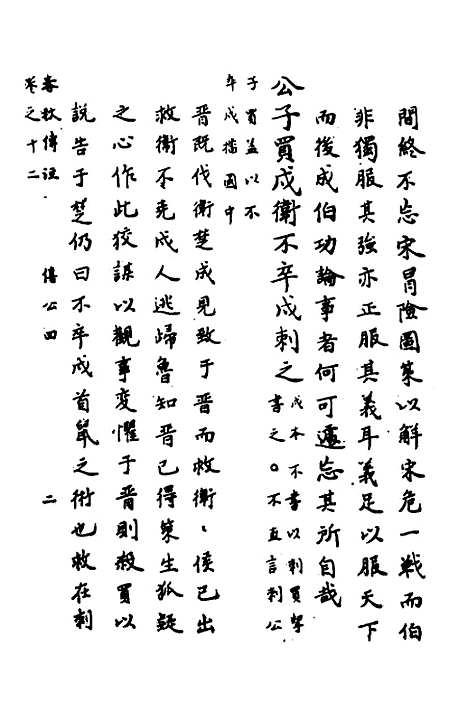 間終不忘宋冒險圖策以解宋危一戰而伯
非獨服其強亦正服其義耳義足以服天下
而後成伯功論事者何可遽忘其所自哉
公子買戍衛不卒戍刺之戍本不書以刺買挈
書之○不直言刺公
子買蓋以不
卒戍播國中
晋既伐衛楚戍見致于晋而救衛、侯已出
救衛不克戍人逃歸魯知晋已得策生狐疑
之心作此狡謀以觀事変懼于晋則殺買以
說告于楚仍曰不卒戍首鼠之術也救在刺
春秋傳註 僖公四 二
卷之十二